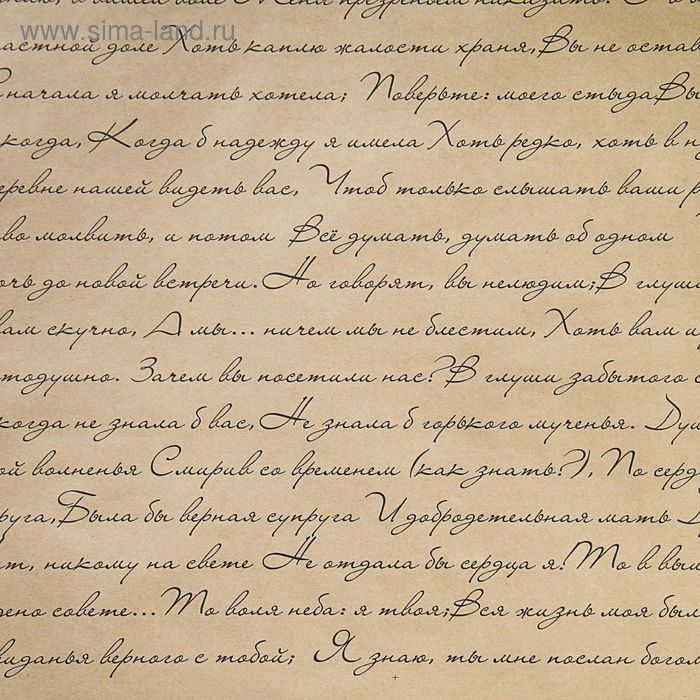 www.sima-land.ru
в вашей воле Меня презреньем наказать.
частной доле Хоть каплю жалости храня, Вы не остав
начала я молчать хотела; Поверьте: моего стыда Вы
когда, Когда б надежду я имела Хоть редко, хоть в н
еревне нашей видеть вас, Чтоб только слышать ваши р
во молвить, и потом Всё думать, думать об одном
очь до новой встречи. Но говорят, вы нелюдим; В глуши
вам скучно, А мы... ничем мы не блестим, Хоть вам и
тодушно. Зачем вы посетили нас? В глуши забытого с
когда не знала б вас, Не знала б горького мученья. Душ
ой волненья Смирив со временем (как знать?), По серд
руга, Была бы верная супруга И добродетельная мать Д
т, никому на свете Не отдала бы сердца я! То в выш
дено совете... То воля неба: я твоя; Вся жизнь моя был
виданья верного с тобой; Я знаю, ты мне послан богом